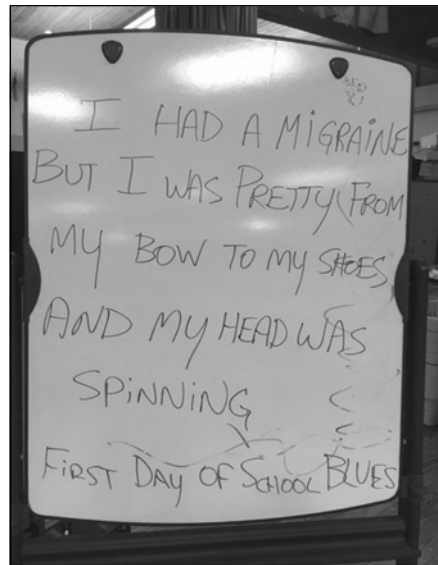 I HAD A MIGRAINE
BUT I WAS PRETTY FROM
MY BOW TO MY SHOES
AND MY HEAD WAS
SPINNING
FIRST DAY OF SCHOOL BLUES